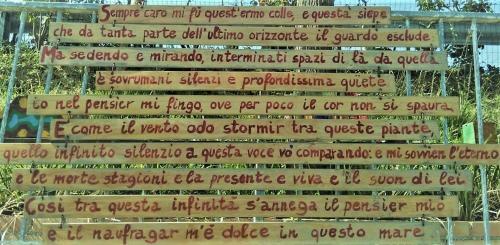 Sempre caro mi fu quest'ermo colle, e questa siepe
che da tanta parte dell'ultimo orizzonte il guardo esclude
Ma sedendo e mirando, interminati spazi di là da quella
è sovrumani silenzi e profondissima quiete
io nel pensier mi fingo, ove per poco il cor non si spaura
E come il vento odo stormir tra queste piante,
quello infinito silenzio a questa voce vo comparando: e mi sovvien l'eterno
e le morte stagioni e la presente e viva e il suon di lei
Così tra questa infinità s'annega il pensier mio
e il naufragar m'è dolce in questo mare